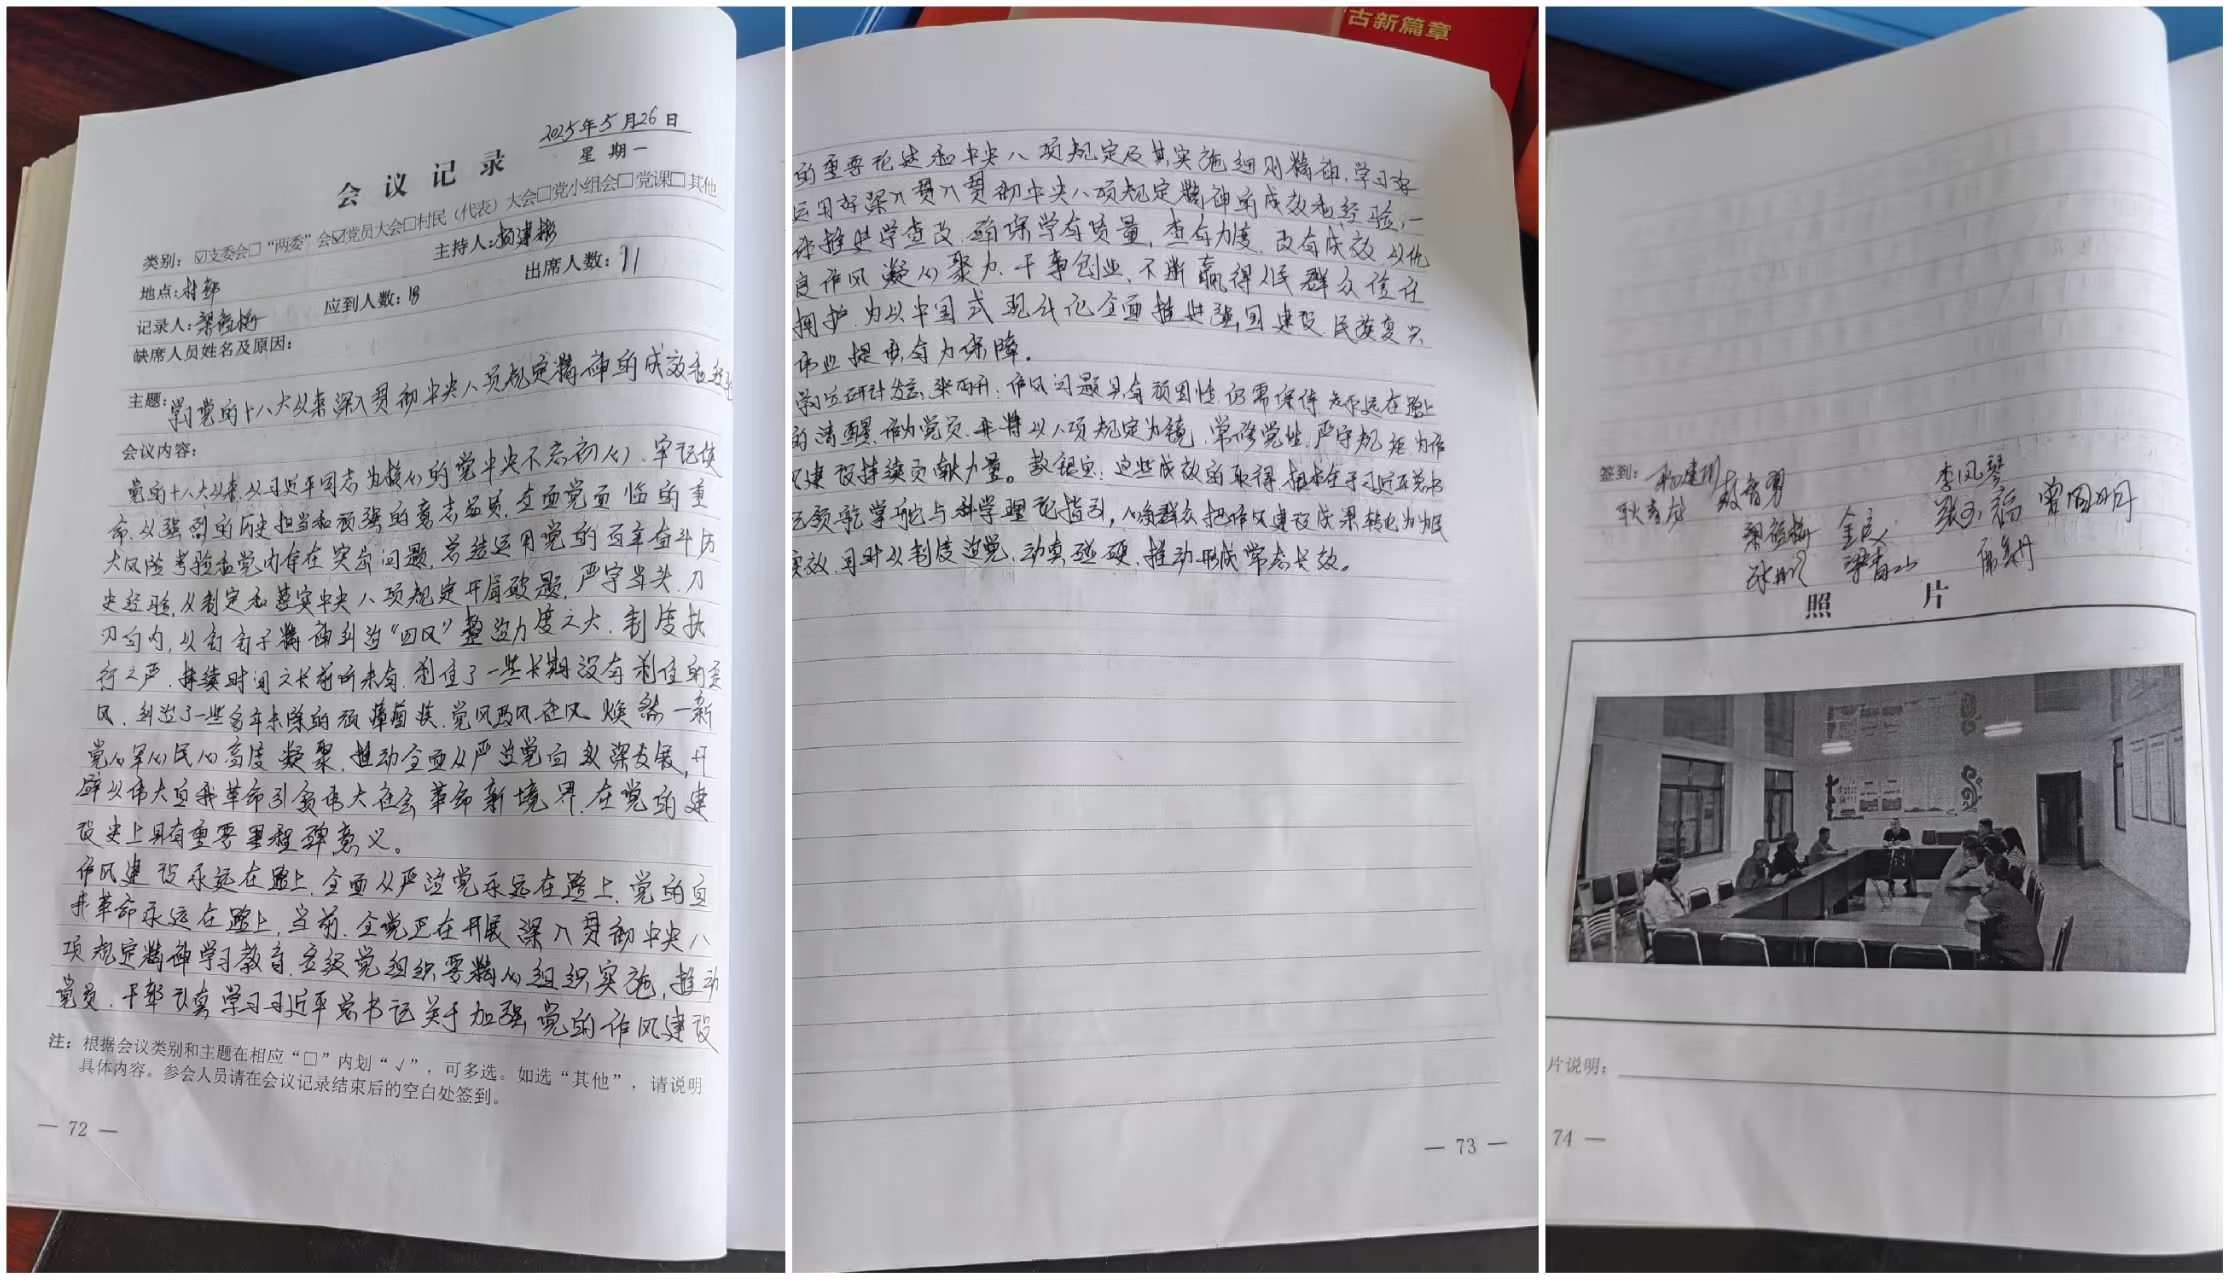 2025年5月26日
星期一
会议记录
类别：☑支委会□“两委”会☑党员大会□村民（代表）大会□党小组会□党课□其他
地点：村部 主持人：杨建彬
记录人：梁筱梅 应到人数：18 出席人数：11
缺席人员姓名及原因：
主题：学习党的十八大以来深入贯彻中央八项规定精神的成效和经验
会议内容：
党的十八大以来，以习近平同志为核心的党中央不忘初心、牢记使
命，以强烈的历史担当和顽强的意志品质，直面党面临的重
大风险考验和党内存在突出问题，总结运用党的百年奋斗历
史经验，从制定和落实中央八项规定开局破题，严字当头、刀
刃向内，以钉钉子精神纠治“四风”，整治力度之大、制度执
行之严、持续时间之长前所未有，刹住了一些长期没有刹住的歪
风，纠治了一些多年未除的顽瘴痼疾，党风政风社风焕然一新
党心军心民心高度凝聚，推动全面从严治党向纵深发展，开
辟以伟大自我革命引领伟大社会革命新境界，在党的建
设史上具有重要里程碑意义。
作风建设永远在路上，全面从严治党永远在路上，党的自
我革命永远在路上，当前，全党正在开展深入贯彻中央八
项规定精神学习教育，各级党组织要精心组织实施，推动
党员、干部认真学习习近平总书记关于加强党的作风建设
注：根据会议类别和主题在相应“□”内划“√”，可多选。如选“其他”，请说明
具体内容。参会人员请在会议记录结束后的空白处签到。
— 72 —
古新篇章
的重要论述和中央八项规定及其实施细则精神，学习好
运用好深入贯入贯彻中央八项规定精神的成效和经验，一
体推进学查改，确保学有质量，查有力度，改有成效，以优
良作风凝心聚力、干事创业，不断赢得人民群众信任
拥护，为以中国式现代化全面推进强国建设、民族复兴
伟业提供有力保障。
学习研讨发言：张丙升：作风问题具有顽固性，仍需保持永远在路上
的清醒，作为党员，我将以八项规定为镜，常修党性，严守规矩，为作
风建设持续贡献力量。敖银宝：这些成效的取得，根本在于习近平总书
记领航掌舵与科学理论指引，必将群众把作风建设成果转化为为民
实效，同时以制度治党，动真碰硬，推动形成常态长效。
— 73 —
签到：李凤琴
梁筱梅 曾国明
梁青山
照片
片说明：
74 —